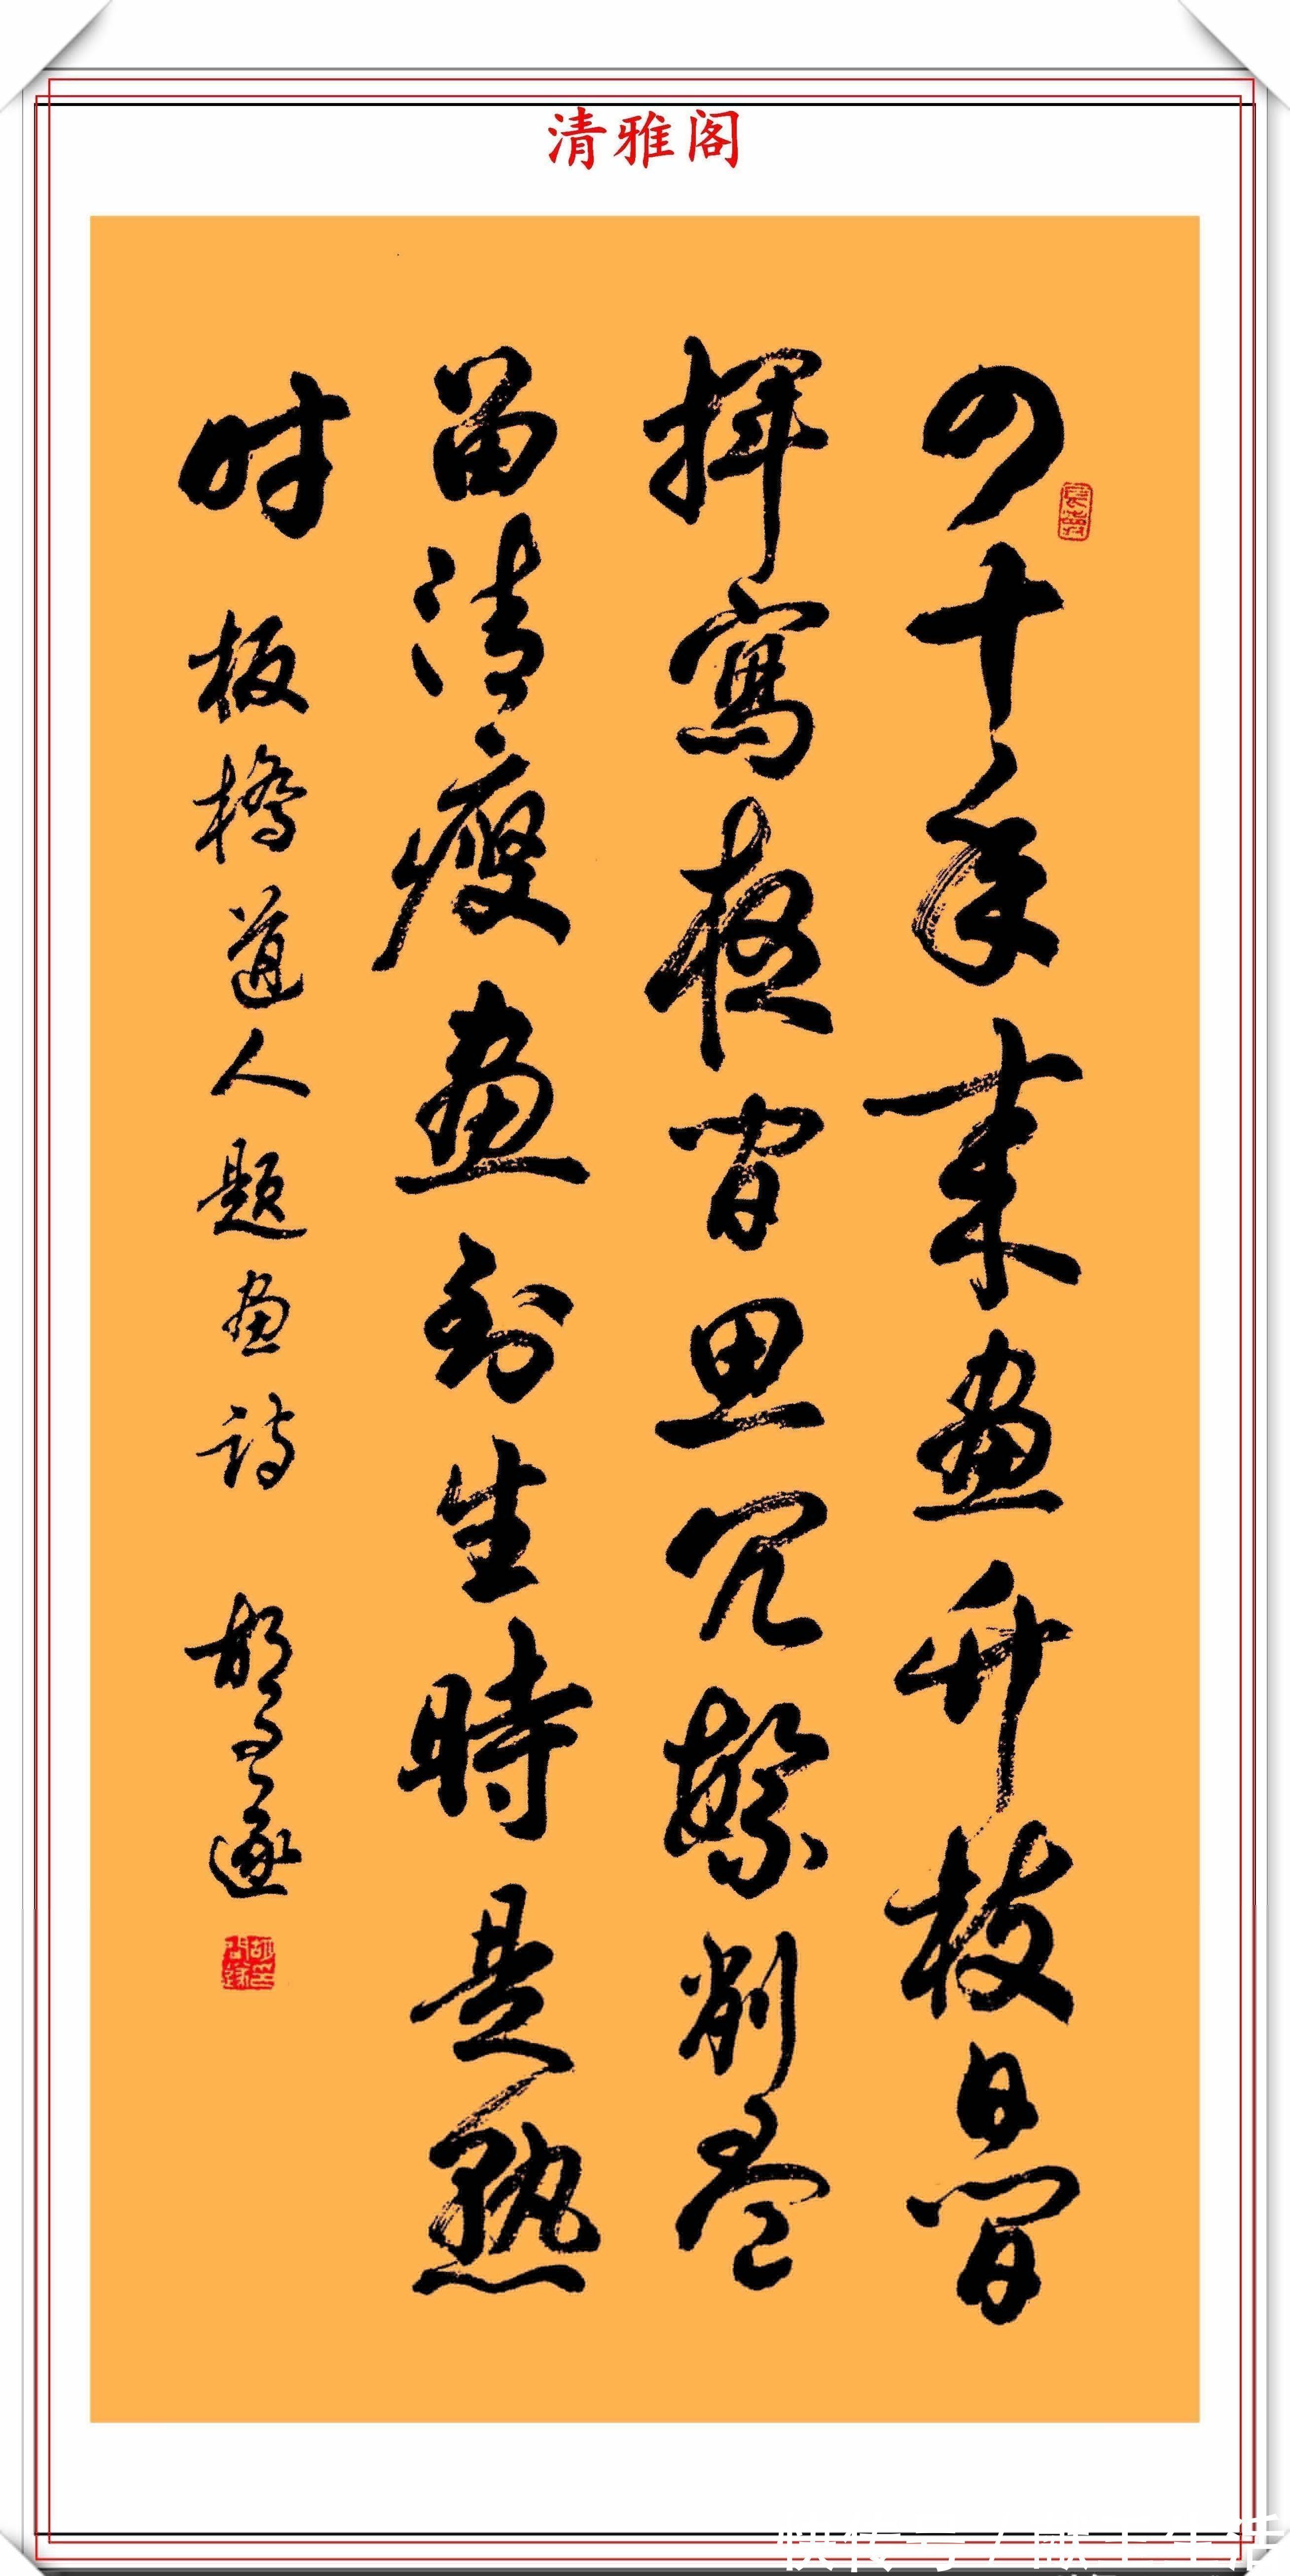 清雅阁
四十年来画竹枝日间
揮寫夜间思冗繁削尽
留清瘦画到生時是熟
时
板橋道人題画诗 胡公遂